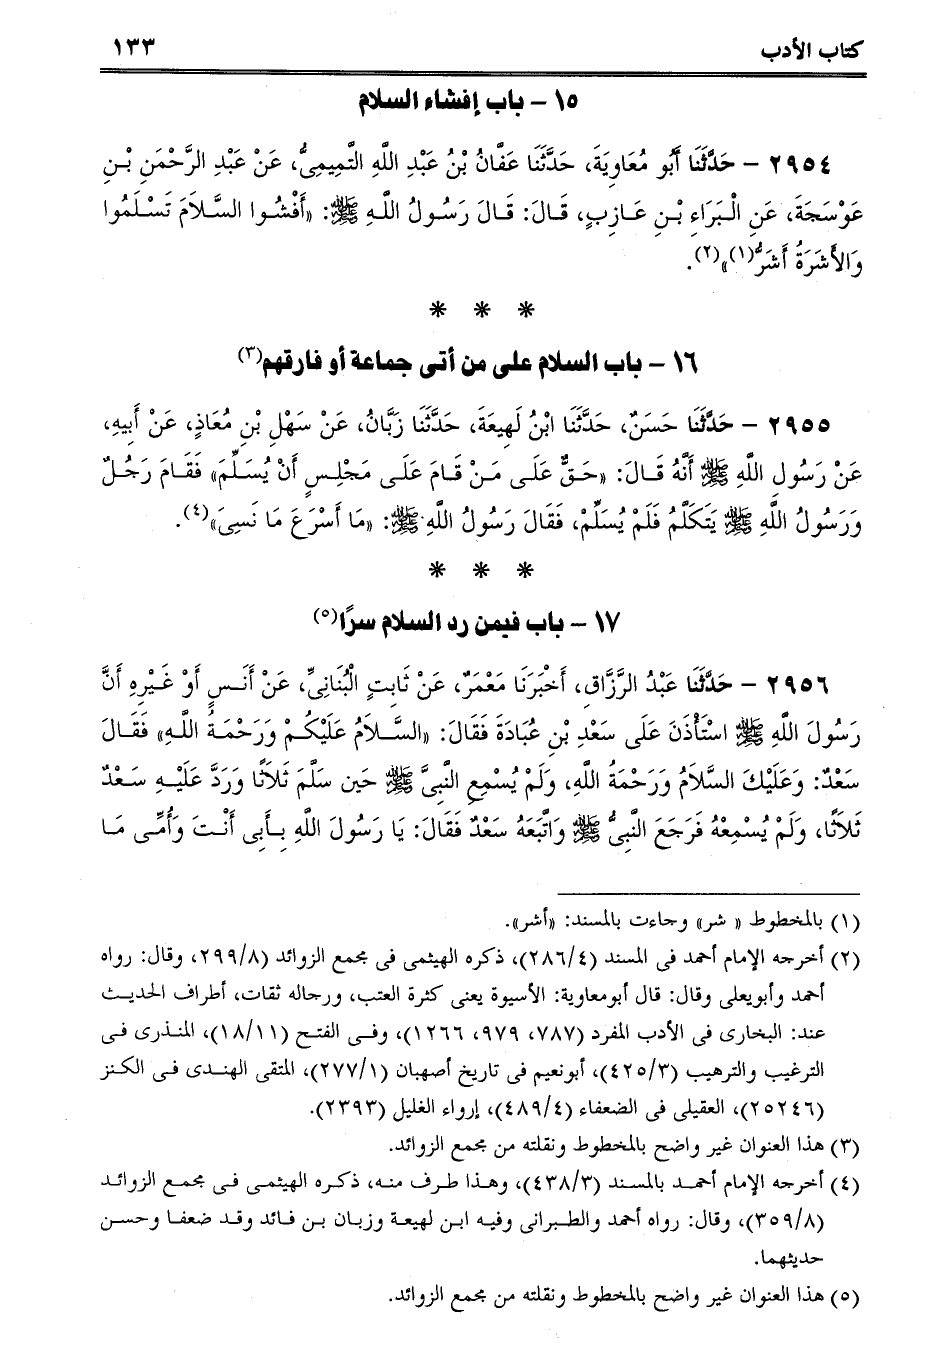 كتاب الأدب ١٣٣
١٥ - باب إفشاء السلام
٢٩٥٤ - حَدَّثَنَا أَبُو مُعَاوِيَةَ، حَدَّثَنَا عَفَّانُ بْنُ عَبْدِ اللَّهِ التَّمِيمِيُّ، عَنْ عَبْدِ الرَّحْمَنِ بْنِ
عَوْسَجَةَ، عَنِ الْبَرَاءِ بْنِ عَازِبٍ، قَالَ: قَالَ رَسُولُ اللَّهِ ﷺ: «أَفْشُوا السَّلاَمَ تَسْلَمُوا
وَالأَشَرَةُ أَشَرُّ(١)»(٢).
* * *
١٦ - باب السلام على من أتى جماعة أو فارقهم(٣)
٢٩٥٥ - حَدَّثَنَا حَسَنٌ، حَدَّثَنَا ابْنُ لَهِيعَةَ، حَدَّثَنَا زَبَّانُ، عَنْ سَهْلِ بْنِ مُعَاذٍ، عَنْ أَبِيهِ،
عَنْ رَسُولِ اللَّهِ ﷺ أَنَّهُ قَالَ: «حَقٌّ عَلَى مَنْ قَامَ عَلَى مَجْلِسٍ أَنْ يُسَلِّمَ» فَقَامَ رَجُلٌ
وَرَسُولُ اللَّهِ ﷺ يَتَكَلَّمُ فَلَمْ يُسَلِّمْ، فَقَالَ رَسُولُ اللَّهِ ﷺ: «مَا أَسْرَعَ مَا نَسِىَ»(٤).
* * *
١٧ - باب فيمن رد السلام سرًا(٥)
٢٩٥٦ - حَدَّثَنَا عَبْدُ الرَّزَّاقِ، أَخْبَرَنَا مَعْمَرٌ، عَنْ ثَابِتٍ الْبُنَانِىِّ، عَنْ أَنَسٍ أَوْ غَيْرِهِ أَنَّ
رَسُولَ اللَّهِ ﷺ اسْتَأْذَنَ عَلَى سَعْدِ بْنِ عُبَادَةَ فَقَالَ: «السَّلاَمُ عَلَيْكُمْ وَرَحْمَةُ اللَّهِ» فَقَالَ
سَعْدٌ: وَعَلَيْكَ السَّلاَمُ وَرَحْمَةُ اللَّهِ، وَلَمْ يُسْمِعِ النَّبِىَّ ﷺ حَين سَلَّمَ ثَلاَثًا وَرَدَّ عَلَيْهِ سَعْدٌ
ثَلاَثًا، وَلَمْ يُسْمِعْهُ فَرَجَعَ النَّبِىُّ ﷺ وَاتَّبَعَهُ سَعْدٌ فَقَالَ: يَا رَسُولَ اللَّهِ بِأَبِى أَنْتَ وَأُمِّى مَا
(١) بالمخطوط « شر» وجاءت بالمسند: «أشر».
(٢) أخرجه الإمام أحمد فى المسند (٢٨٦/٤)، ذكره الهيثمى فى مجمع الزوائد (٢٩٩/٨، وقال: رواه
أحمد وأبويعلى وقال: قال أبومعاوية: الأسيوة يعنى كثرة العتب، ورجاله ثقات، أطراف الحديث
عند: البخارى فى الأدب المفرد (٧٨٧، ٩٧٩، ١٢٦٦)، وفى الفتح (١٨/١١)، المنذرى فى
الترغيب والترهيب (٤٢٥/٣)، أبونعيم فى تاريخ أصبهان (٢٧٧/١)، المتقى الهندى فى الكنز
(٢٥٢٤٦)، العقيلى فى الضعفاء (٤٨٩/٤)، إرواء الغليل (٢٣٩٣).
(٣) هذا العنوان غير واضح بالمخطوط ونقلته من مجمع الزوائد.
(٤) أخرجه الإمام أحمد بالمسند (٤٣٨/٣)، وهذا طرف منه، ذكره الهيثمى فى مجمع الزوائد
(٣٥٩/٨)، وقال: رواه أحمد والطبرانى وفيه ابن لهيعة وزبان بن فائد وقد ضعفا وحسن
حديثهما.
(٥) هذا العنوان غير واضح بالمخطوط ونقلته من مجمع الزوائد.